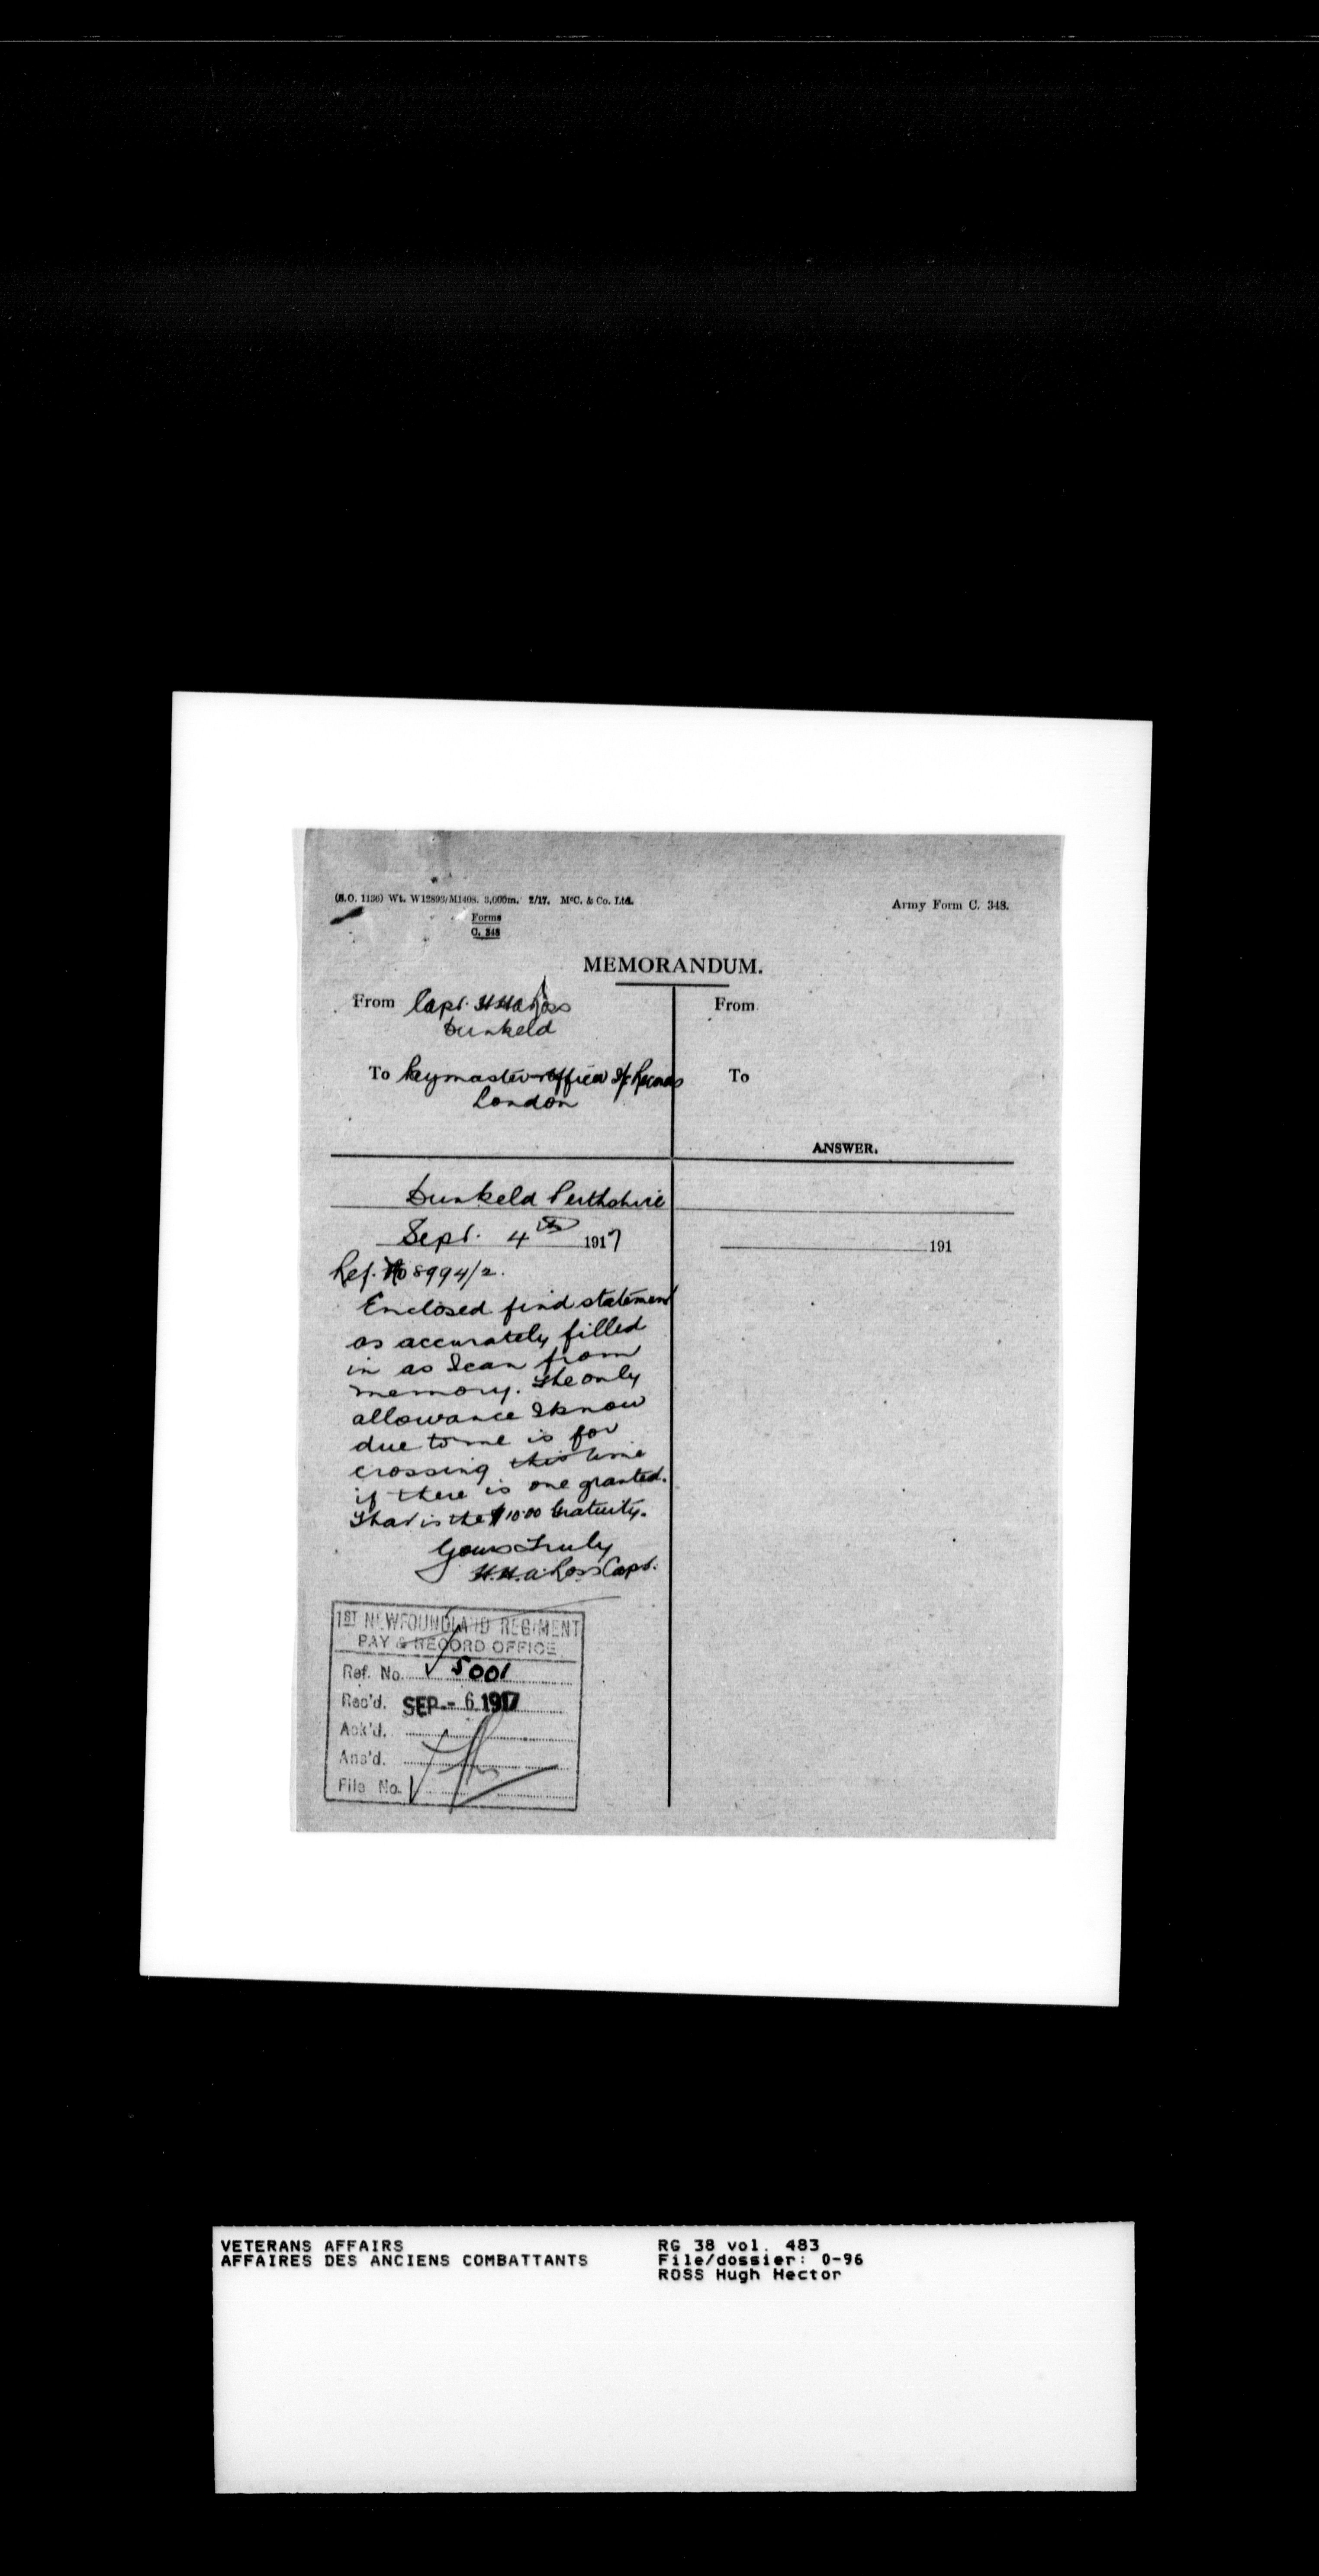 (S.O. 1136) Wt. W12893/M1408. 3,000m. 2/17. McC. & Co. Ltd.
Army Form C. 348.
Forms
C. 348
MEMORANDUM.
From Capt. H.H.A. Ross
Dunkeld
To Paymaster Officer I/c Records
London
From
To
ANSWER.
Dunkeld Perthshire
Sept. 4th 1917
191
Ref. No 8994/2.
Enclosed find statement
as accurately filled
in as I can from
memory. The only
allowance I know
due to me is for
crossing this time
if there is one granted.
That is the $10.00 Gratuity.
Yours Truly
H.H.A. Ross Capt.
1ST NEWFOUNDLAND REGIMENT
PAY & RECORD OFFICE
Ref. No. 5001
Rec'd. SEP - 6 1917
Ack'd.
Ans'd.
File No.
VETERANS AFFAIRS
AFFAIRES DES ANCIENS COMBATTANTS
RG 38 vol. 483
File/dossier: 0-96
ROSS Hugh Hector